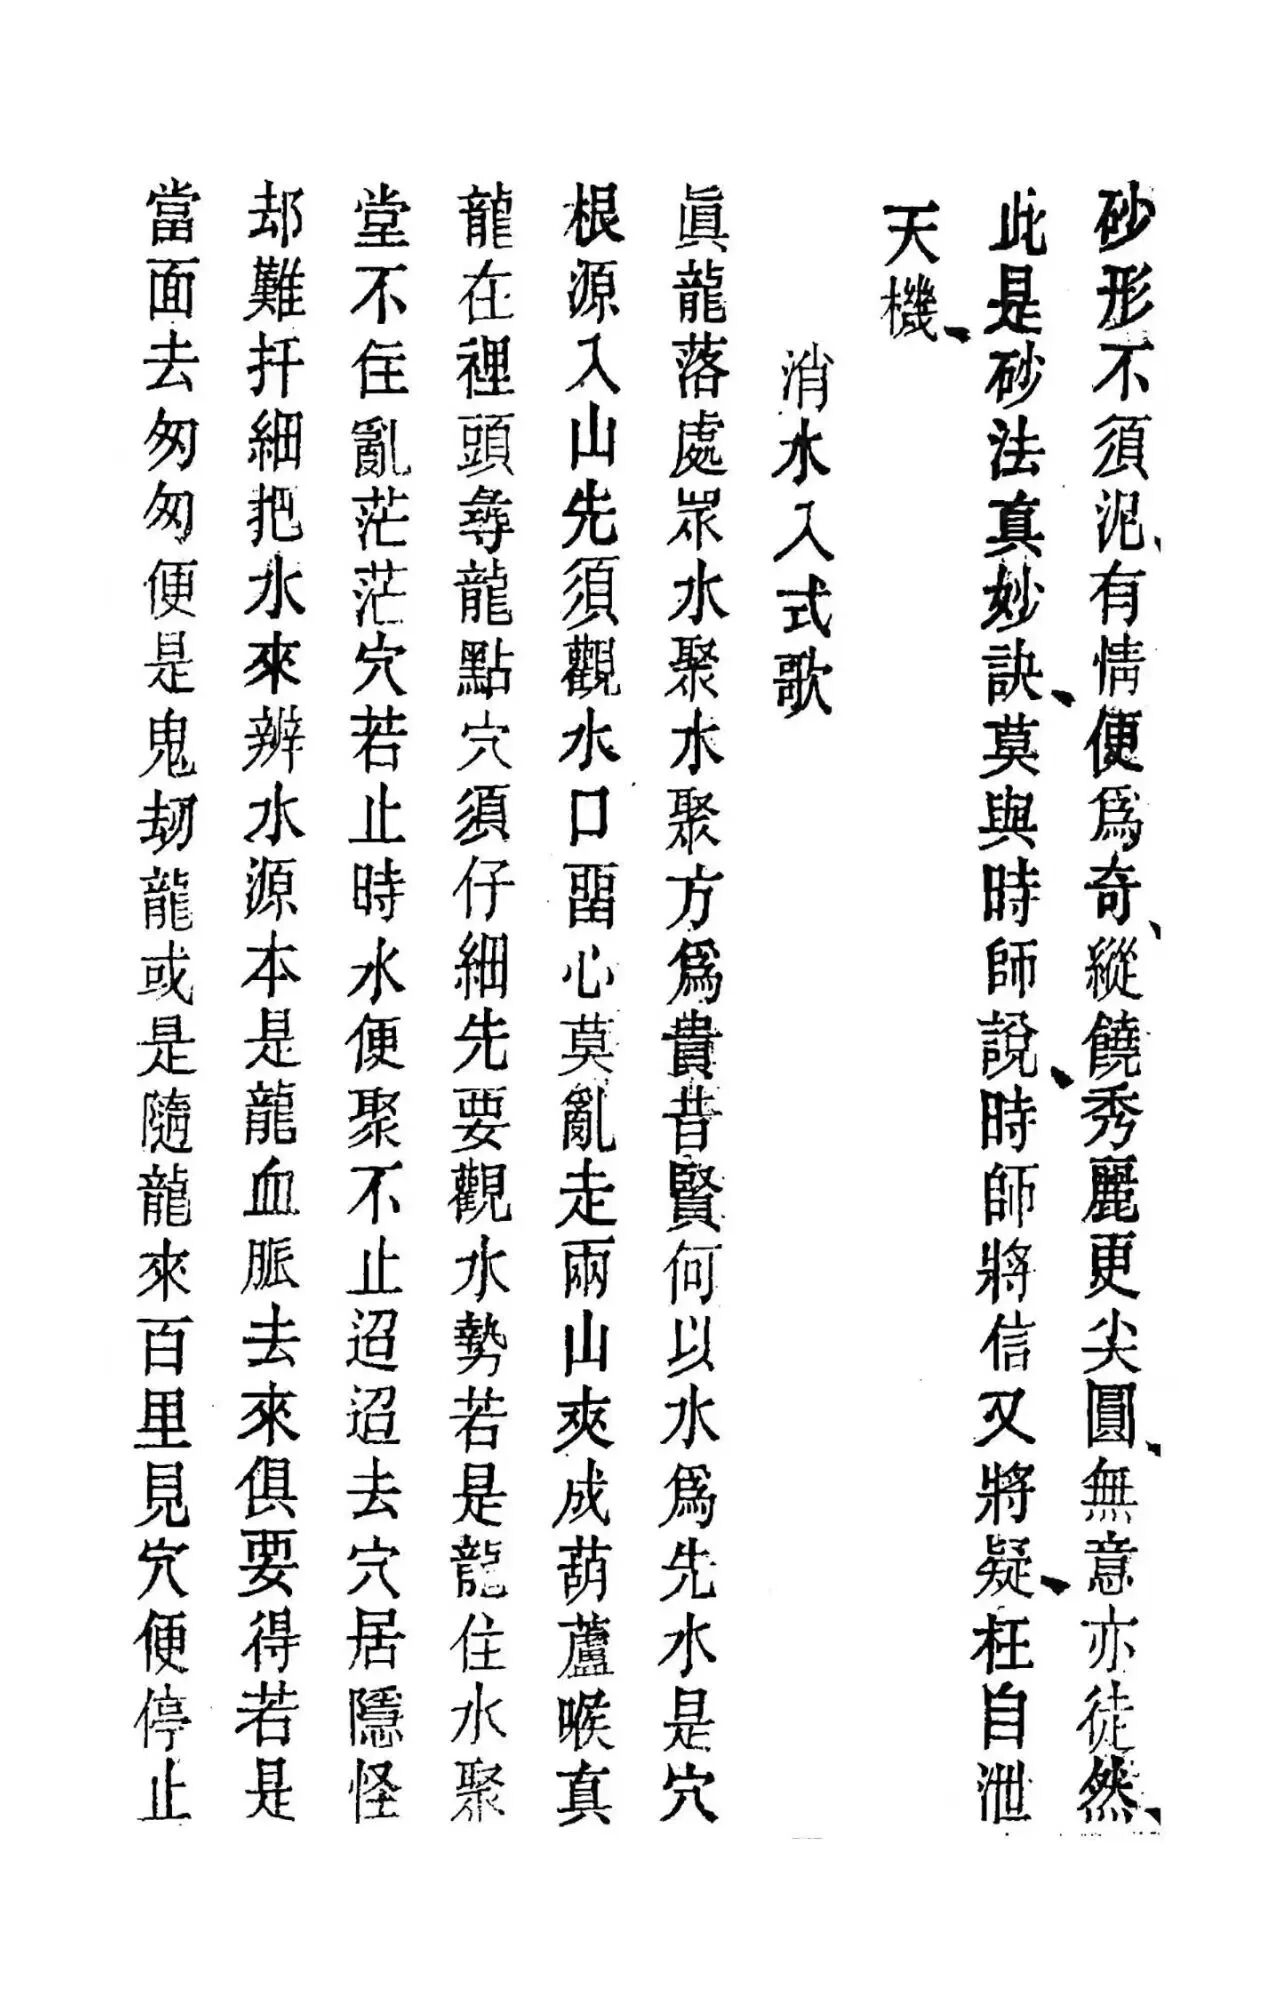 砂形不須泥、有情便爲奇、縱饒秀麗更尖圓、無意亦徒然、
此是砂法真妙訣、莫與時師說、時師將信又將疑、枉自泄
天機、
消水入式歌
眞龍落處眾水聚水聚方爲貴昔賢何以水爲先水是穴
根源入山先須觀水口畱心莫亂走兩山夾成葫蘆喉真
龍在裡頭尋龍點穴須仔細先要觀水勢若是龍住水聚
堂不住亂茫茫穴若止時水便聚不止迢迢去穴居隱怪
却難扦細把水來辨水源本是龍血脈去來俱要得若是
當面去匆匆便是鬼刼龍或是隨龍來百里見穴便停止